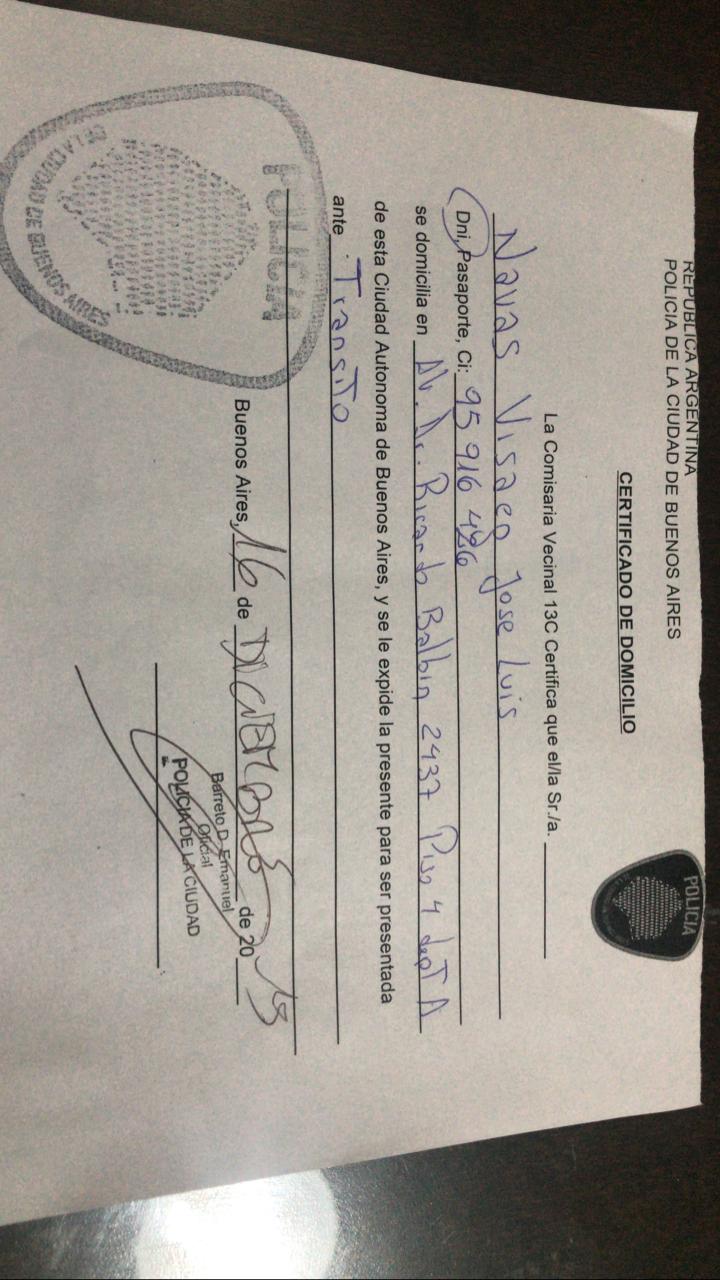 REPUBLICA ARGENTINA
POLICIA DE LA CIUDAD DE BUENOS AIRES
POLICIA
CERTIFICADO DE DOMICILIO
La Comisaria Vecinal 13C Certifica que el/la Sr./a.
Navas Visaep Jose Luis
Dni, Pasaporte, Ci: 95 916 486
se domicilia en Av. Dr. Ricardo Balbin 2437 Piso 4 dept A
de esta Ciudad Autonoma de Buenos Aires, y se le expide la presente para ser presentada
ante Transito
Buenos Aires, 16 de DICIEMBRE de 20 19
Barreto D. Emanuel
Oficial
POLICIA DE LA CIUDAD
POLICIA
DE LA CIUDAD DE BUENOS AIRES